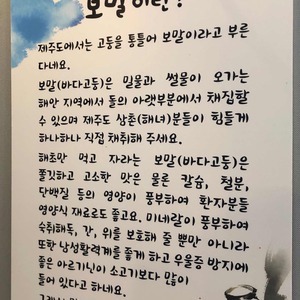 보말이란?
제주도에서는 고동을 통틀어 보말이라고 부른
다네요.
보말(바다고동)은 밀물과 썰물이 오가는
해안 지역에서 돌의 아랫부분에서 채집할
수 있으며 제주도 삼춘(해녀)분들이 힘들게
하나하나 직접 채취해 주세요.
해초만 먹고 자라는 보말(바다고동)은
쫄깃하고 고소한 맛은 물론 칼슘, 철분,
단백질 등의 영양이 풍부하여 환자분들
영양식 재료로도 좋고요. 미네랄이 풍부하여
숙취해독, 간, 위를 보호해 줄 뿐만 아니라
또한 남성활력계를 좋게 하고 우울증 방지에
좋은 아르기닌이 소고기보다 많이
들어 있다고 하네요.